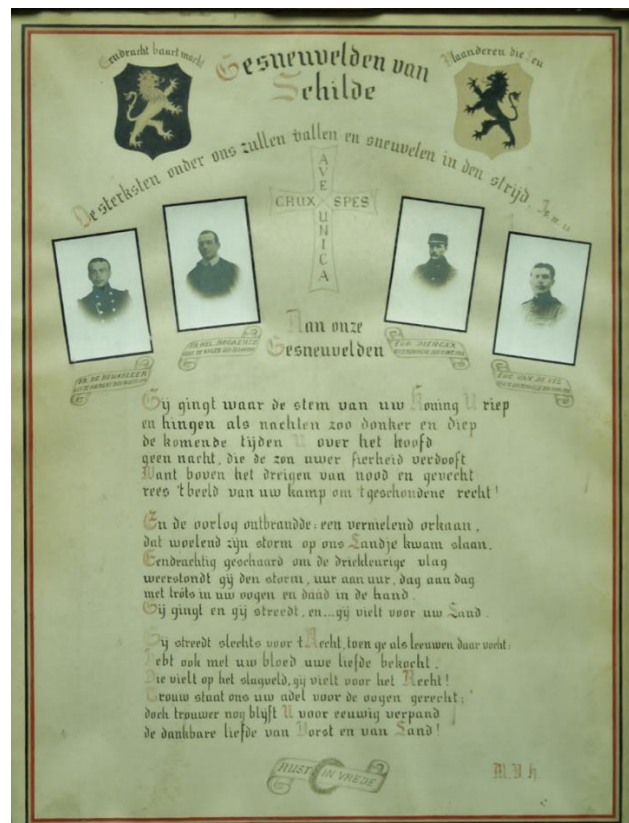 Eendracht baart macht
Vlaanderen die Leu
Gesneuvelden van
Schilde
De sterksten onder ons zullen vallen en sneuvelen in den strijd.
AVE
CRUX SPES
UNICA
Aan onze
Gesneuvelden
Gij gingt waar de stem van uw Koning U riep
en hingen als nachten zoo donker en diep
de komende tijden U over het hoofd
geen nacht, die de zon uwer fierheid verdooft
Want boven het dreigen van nood en gevecht
rees 't beeld van uw kamp om 't geschondene recht!
En de oorlog ontbrandde: een vernielend orkaan,
dat woelend zijn storm op ons Landje kwam slaan.
Eendrachtig geschaard om de driekleurige vlag
weerstondt gij den storm, uur aan uur, dag aan dag
met trots in uw oogen en daad in de hand.
Gij gingt en gij streedt, en...gij vielt voor uw Land.
Gij streedt slechts voor 't Recht, toen ge als leeuwen daar vocht:
hebt ook met uw bloed uwe liefde bekocht.
Die vielt op het slagveld, gij vielt voor het Recht!
Trouw staat ons uw adel voor de oogen gerecht;
doch trouwer nog blijft U voor eeuwig verpand
de dankbare liefde van Vorst en van Land!
RUST IN VREDE
M.V.h.